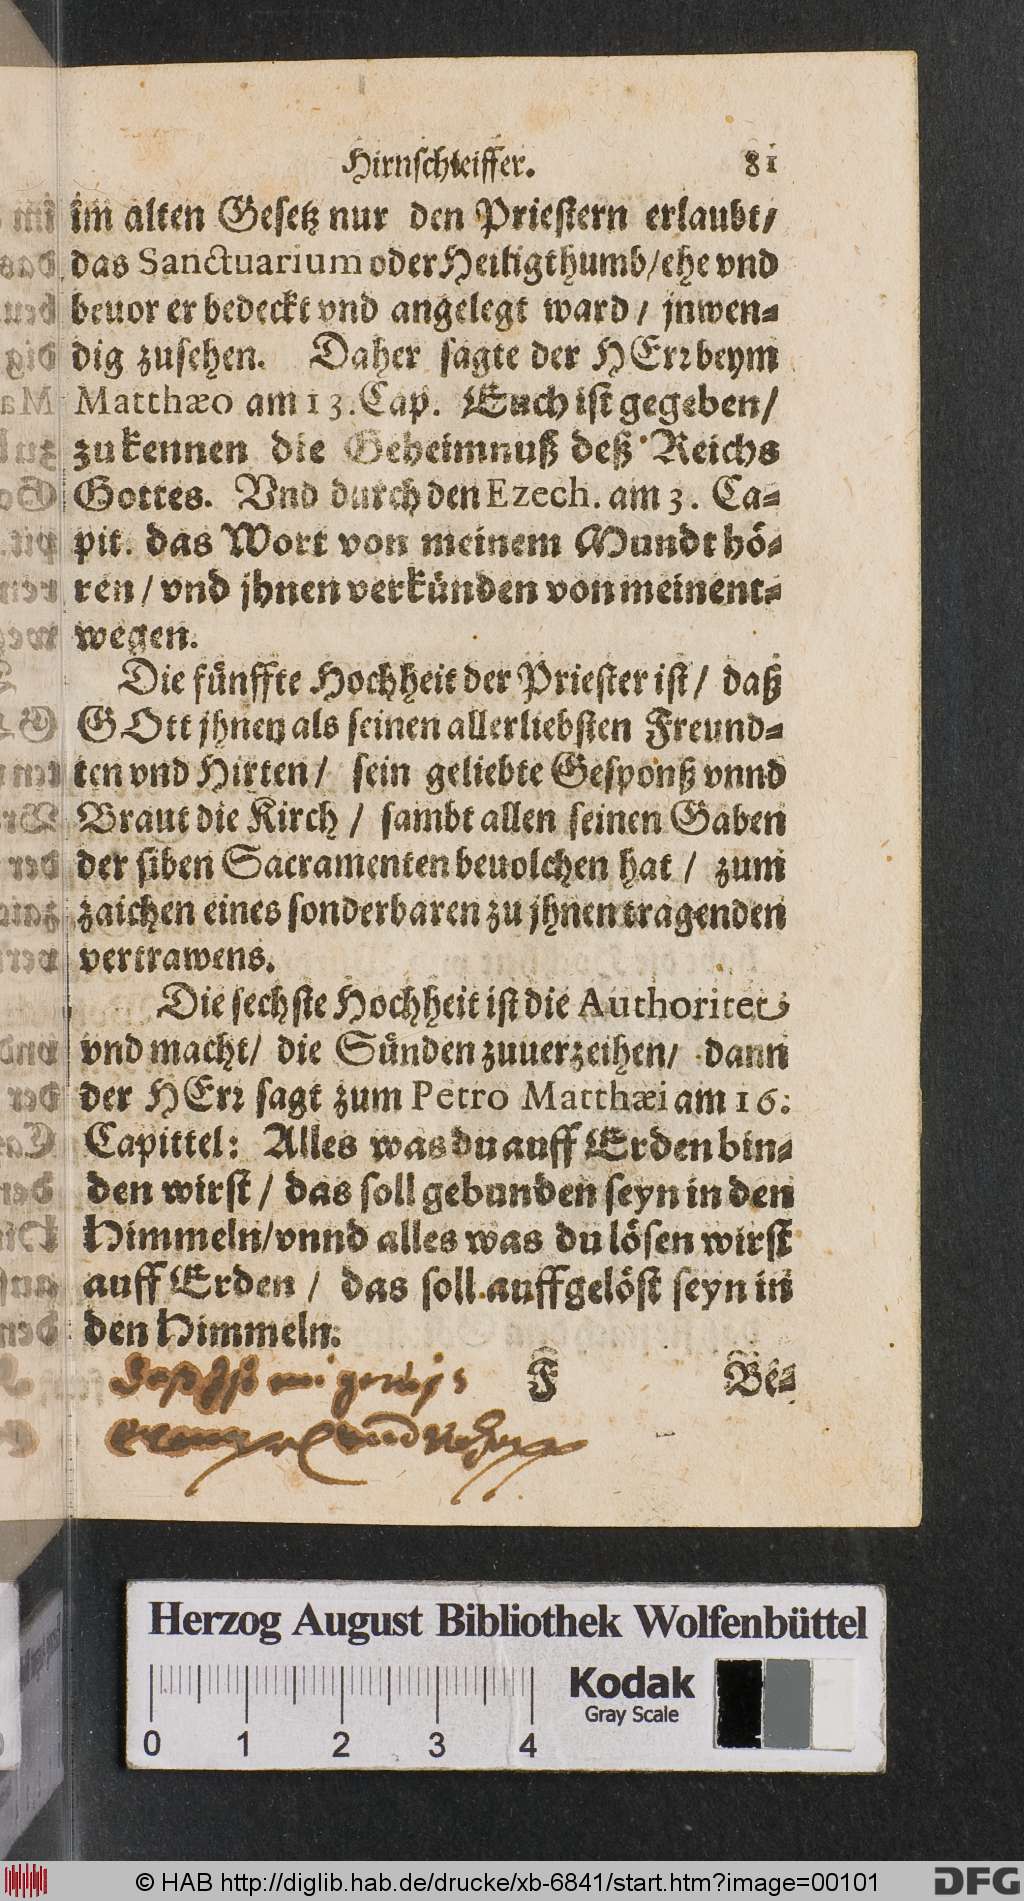 Hirnschleiffer. 81
im alten Gesetz nur den Priestern erlaubt/
das Sanctuarium oder Heiligthumb/ehe vnd
beuor er bedeckt vnd angelegt ward / jnwen-
dig zusehen. Daher sagte der HErr beym
Matthæo am 13. Cap. Euch ist gegeben/
zu kennen die Geheimnuß deß Reichs
Gottes. Vnd durch den Ezech. am 3. Ca-
pit. das Wort von meinem Mundt hö-
ren / vnd jhnen verkünden von meinent-
wegen.
Die fünffte Hochheit der Priester ist / daß
GOtt jhnen als seinen allerliebsten Freund-
ten vnd Hirten / sein geliebte Gesponß vnnd
Braut die Kirch / sambt allen seinen Gaben
der siben Sacramenten beuolchen hat / zum
zaichen eines sonderbaren zu jhnen tragenden
vertrawens.
Die sechste Hochheit ist die Authoritet
vnd macht/ die Sünden zuuerzeihen/ dann
der HErr sagt zum Petro Matthæi am 16.
Capittel: Alles was du auff Erden bin-
den wirst / das soll gebunden seyn in den
Himmeln/vnnd alles was du lösen wirst
auff Erden / das soll auffgelöst seyn in
den Himmeln.
F Be-
Herzog August Bibliothek Wolfenbüttel
Kodak
Gray Scale
0 1 2 3 4
© HAB http://diglib.hab.de/drucke/xb-6841/start.htm?image=00101
DFG